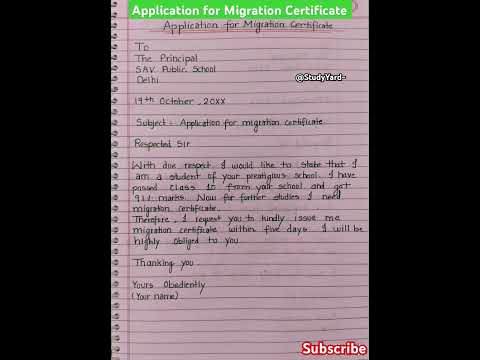 Application for Migration Certificate
Application for Migration Certificate
To
The Principal
SAV Public School
Delhi
@StudyYard-
19th October, 20XX
Subject : Application for migration certificate.
Respected Sir
With due respect, I would like to state that I
am a student of your prestigious school. I have
passed class 10 from your school and got
91% marks. Now for further studies I need
migration certificate.
Therefore, I request you to kindly issue me
migration certificate within five days. I will be
highly obliged to you.
Thanking you.
Yours Obediently
(Your name)
Subscribe